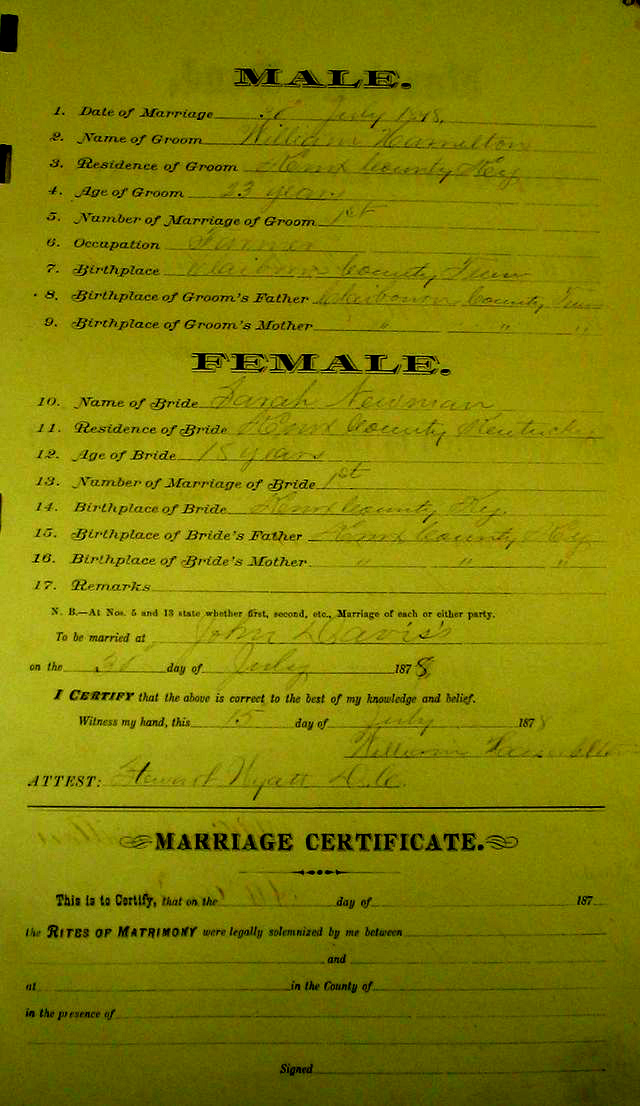 MALE.
1. Date of Marriage 30 July 1878.
2. Name of Groom William Hamilton
3. Residence of Groom Knox County Ky
4. Age of Groom 23 years
5. Number of Marriage of Groom 1st
6. Occupation Farmer
7. Birthplace Claiborne County Tenn
8. Birthplace of Groom's Father Claiborne County Tenn
9. Birthplace of Groom's Mother " " "
FEMALE.
10. Name of Bride Sarah Newman
11. Residence of Bride Knox County Kentucky
12. Age of Bride 15 years
13. Number of Marriage of Bride 1st
14. Birthplace of Bride Knox County Ky.
15. Birthplace of Bride's Father Knox County Ky
16. Birthplace of Bride's Mother " " "
17. Remarks
N. B.—At Nos. 5 and 13 state whether first, second, etc., Marriage of each or either party.
To be married at John Davis's
on the 30 day of July 1878
I CERTIFY that the above is correct to the best of my knowledge and belief.
Witness my hand, this 15 day of July 1878
William Hamilton
ATTEST: Steward Wyatt D.C.
MARRIAGE CERTIFICATE.
This is to Certify, that on the day of 187
the RITES OF MATRIMONY were legally solemnized by me between
and
at in the County of
in the presence of
Signed